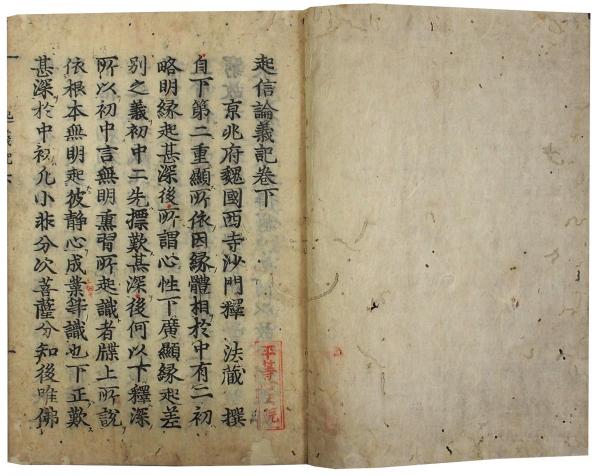 起信論義記卷下
京兆府魏國西寺沙門釋 法藏 撰
自下第二重顯所依因緣體相於中有二初
略明緣起甚深後所謂心性下廣顯緣起差
別之義初中二先標歎甚深後何以下釋深
所以初中言無明熏習所起識者牒上所說
依根本無明起彼靜心成業等識也下正歎
甚深於中初凡小非分次菩薩分知後唯佛
平等